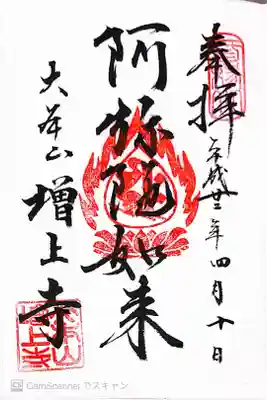 奉拝
平成廿二年四月十日
阿弥陀如来
大本山
増上寺
CamScanner でスキャン